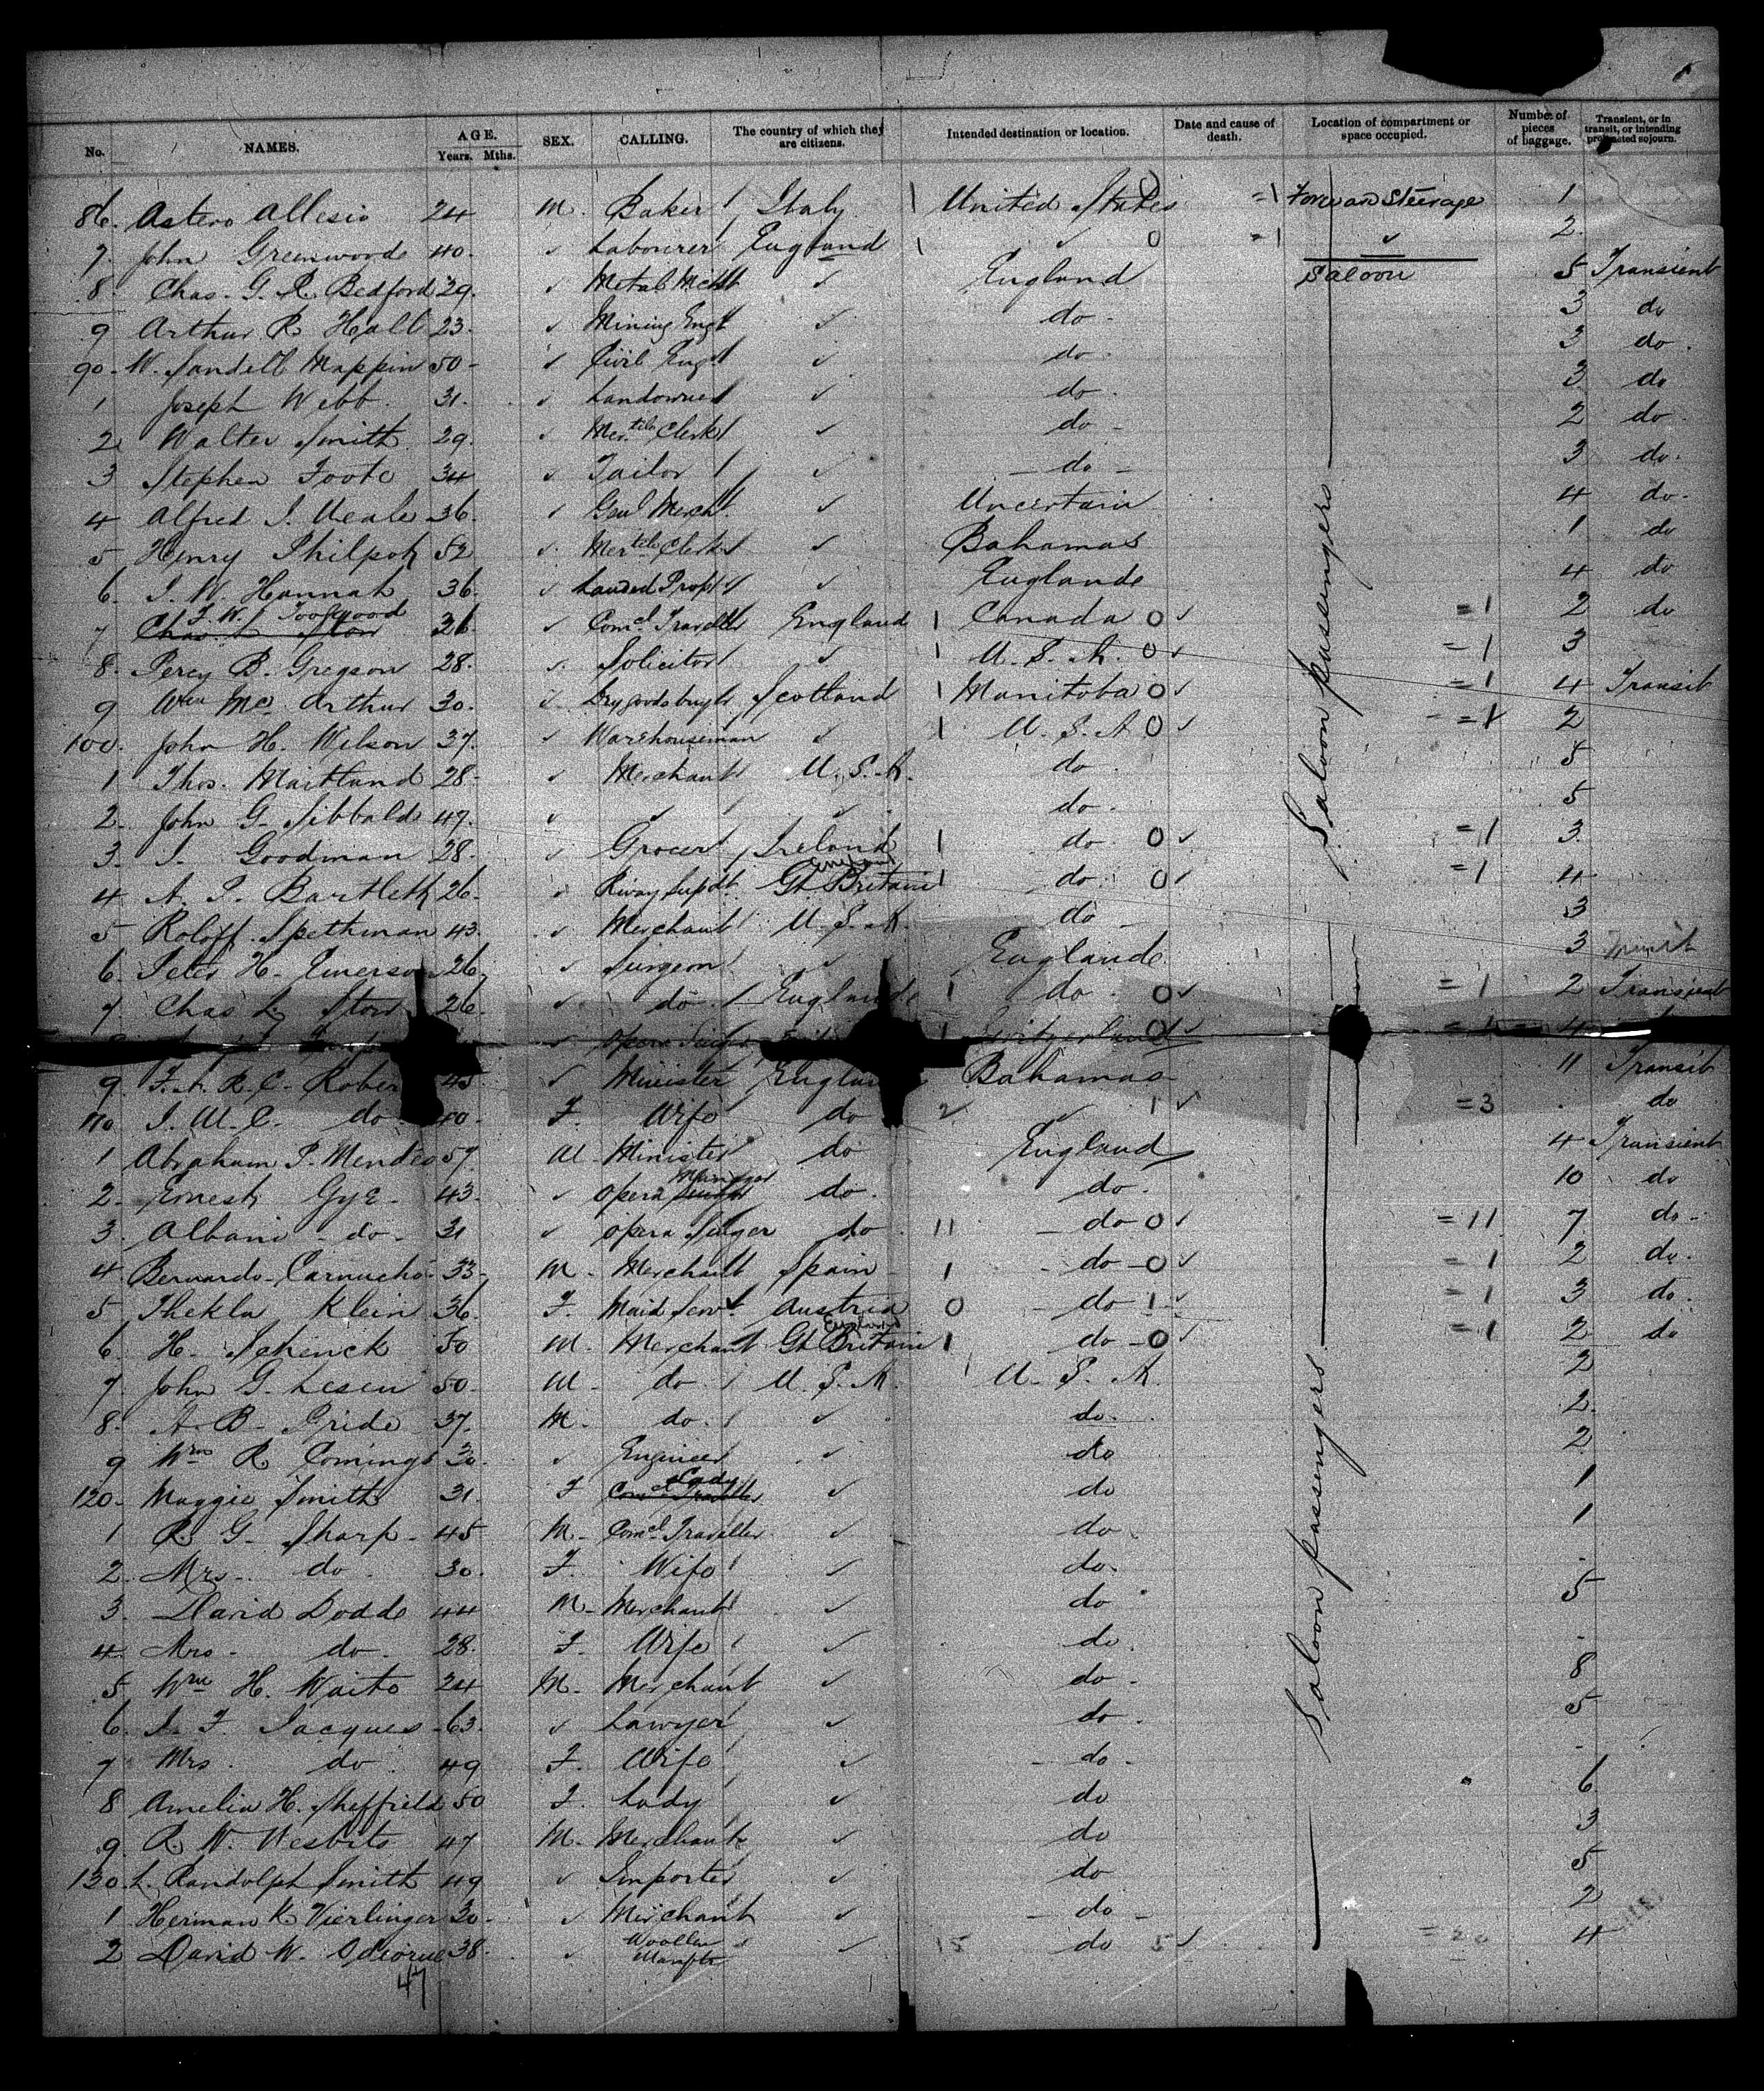 No. NAMES. AGE. Years. Mths. SEX. CALLING. The country of which they are citizens. Intended destination or location. Date and cause of death. Location of compartment or space occupied. Number of pieces of baggage. Transient, or in transit, or intending protracted sojourn.
86. Astero Allesio 24 M. Baker Italy 1 United States =1 Forward Steerage 1
7. John Greenwoode 40. ✓ Labourer England 1 ✓ 0 =1 ✓ 2.
8. Chas. G. R. Bedford 29. ✓ Metal Mcht ✓ England Saloon 5 Transient
9 Arthur R. Hall 23. ✓ Mining Engr ✓ do - 3 do
90. W. Sandell Mappin 50 - ✓ Civil Engr ✓ do - 3 do.
1 Joseph Webb. 31. ✓ Landowner ✓ do. 3 do
2 Walter Smith. 29. ✓ Mertile Clerk ✓ do - 2 do.
3 Stephen Foote 34 ✓ Tailor ✓ - do - 3 do.
4 Alfred J. Neale 36. ✓ Genl Mercht. ✓ Uncertain 4 do-
5 Henry Philpot 52 ✓. Mertile Clerk ✓ Bahamas 1 do
6. J. W. Hannah 36. ✓ Landed Propr ✓ Englande 4 do
F. W. Toogood
7 Chas. L. Storr 36 ✓ Comcl Traveller England 1 Canada 0 ✓ =1 2 do
8. Percy B. Gregson 28. ✓. Solicitor ✓ 1 U. S. A. 0 ✓ =1 3
9 Wm Mc Arthur 30. ✓. Dry goods buyer Scotland 1 Manitoba 0 ✓ =1 4 Transit
100. John H. Wilson 37. ✓ Warehouseman ✓ 1 U. S. A 0 ✓ =1 2
1 Thos. Maitland 28- ✓ Merchant U. S. A. do. 5
2. John G. Sibbald 47. ✓ ✓ ✓ do. 5
3. J. Goodman 28. ✓ Grocer Ireland 1 do. 0 ✓ =1 3.
England
4 A. P. Bartlett 26. ✓ Rlway Supdt. Gt. Britain 1 do. 0 ✓ =1 4
5 Roloff Spethman 43. ✓ Merchant U. S. A. do - 3
6. Peter H. Emerson 26. ✓ Surgeon ✓ Englande 3 Transit
7. Chas L. Storr 26. ✓ do. Englande 1 do. 0 ✓ =1 2 Transient
✓ Opera Singer 1 Switzerland 0 ✓ 4
9 F. R. C. Rober 45 ✓ Minister England Bahamas 11 Transit
110 J. M. C. do. 40. F. Wife do 2 ✓ 1 ✓ =3 . do
1 Abraham P. Mendes 57 M. Minister do England 4 Transient
Manager
2. Ernest Gye. 43. ✓ Opera Singer do. do. 10 do
3. Albani - do - 31 ✓ Opera Singer do. 11 - do - 0 ✓ =11 7 do-
4. Bernardo Carnucho 33. M. Merchant Spain 1 - do - 0 ✓ =1 2 do.
5 Thekla Klein 36. F. Maid Servt. Austria 0 - do 1 ✓ =1 3 do.
England
6. H. Schenck 50 M. Merchant Gt. Britain 1 do - 0 ✓ =1 2 do
7. John G. Lesen 50. M. do. U. S. A. U. S. A. 2
8. A. B. Pride 37. M. do. ✓ do. 2.
9 Wm R. Comings 30. ✓ Engineer ✓ do 2
Lady
120. Maggie Smith 31. F Comcl Traveller ✓ do 1
1 R. G. Sharp 45 M. Comcl Traveller ✓ do. 1
2. Mrs. do. 30. F. Wife ✓ do. -
3. David Dodde 44 M. Merchant ✓ do 5
4. Mrs. do. 28. F. Wife ✓ do. -
5 Wm H. Waite 24 M. Merchant ✓ do - 8
6. J. F. Jacques 63. ✓ Lawyer ✓ do. 5
7 Mrs. do. 49 F. Wife ✓ - do - -
8 Amelia H. Sheffield 50 F. Lady ✓ do 6
9. R. W. Nesbits 47 M. Merchant ✓ do 3
130. L. Randolph Smith 49 ✓ Importer ✓ do 5
1 Herman K. Vierlinger 30. ✓ Merchant ✓ - do - 2
2 David W. Odiorne 38. ✓ Woollen Manfter ✓ 15 do 5 ✓ =20 4
47
Saloon passengers
Saloon passengers